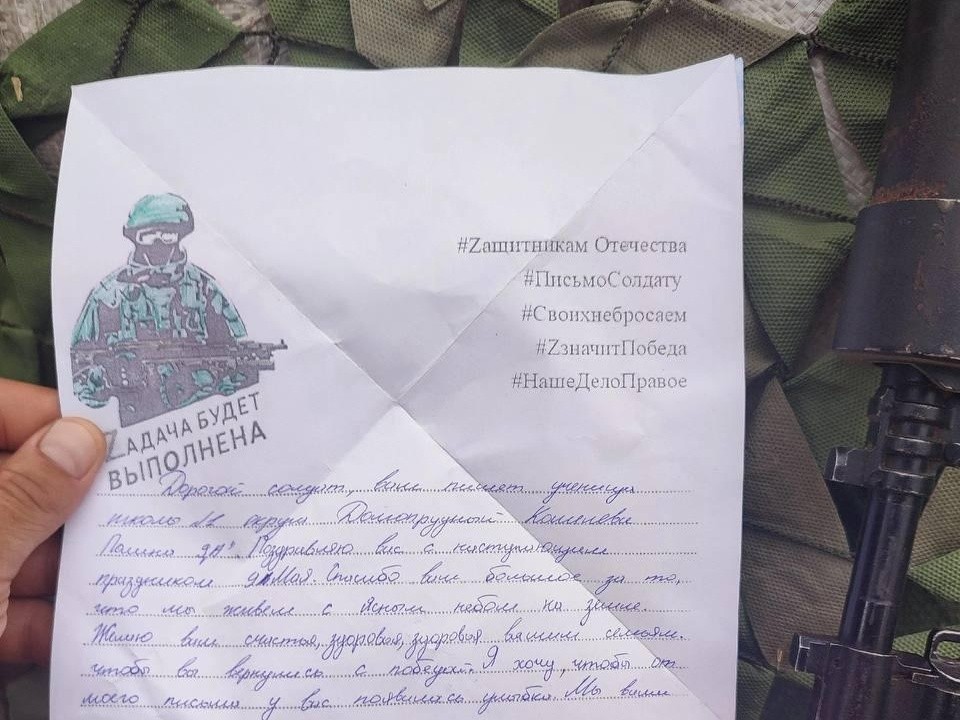 #Zащитникам Отечества
#ПисьмоСолдату
#Своихнебросаем
#ZзначитПобеда
#НашеДелоПравое
ZАДАЧА БУДЕТ
ВЫПОЛНЕНА
Дорогой солдат, вам пишет ученица
школы 11 округа Долгопрудный
Полина Поздравляю вас с наступающим
праздником 9 Мая. Спасибо вам большое за то,
что мы живем с ясным небом на земле.
Желаю вам счастья, здоровья, здоровья вашим семьям.
чтобы вы вернулись с победой. Я хочу, чтобы от
моего письма у вас появилась улыбка. Мы вами